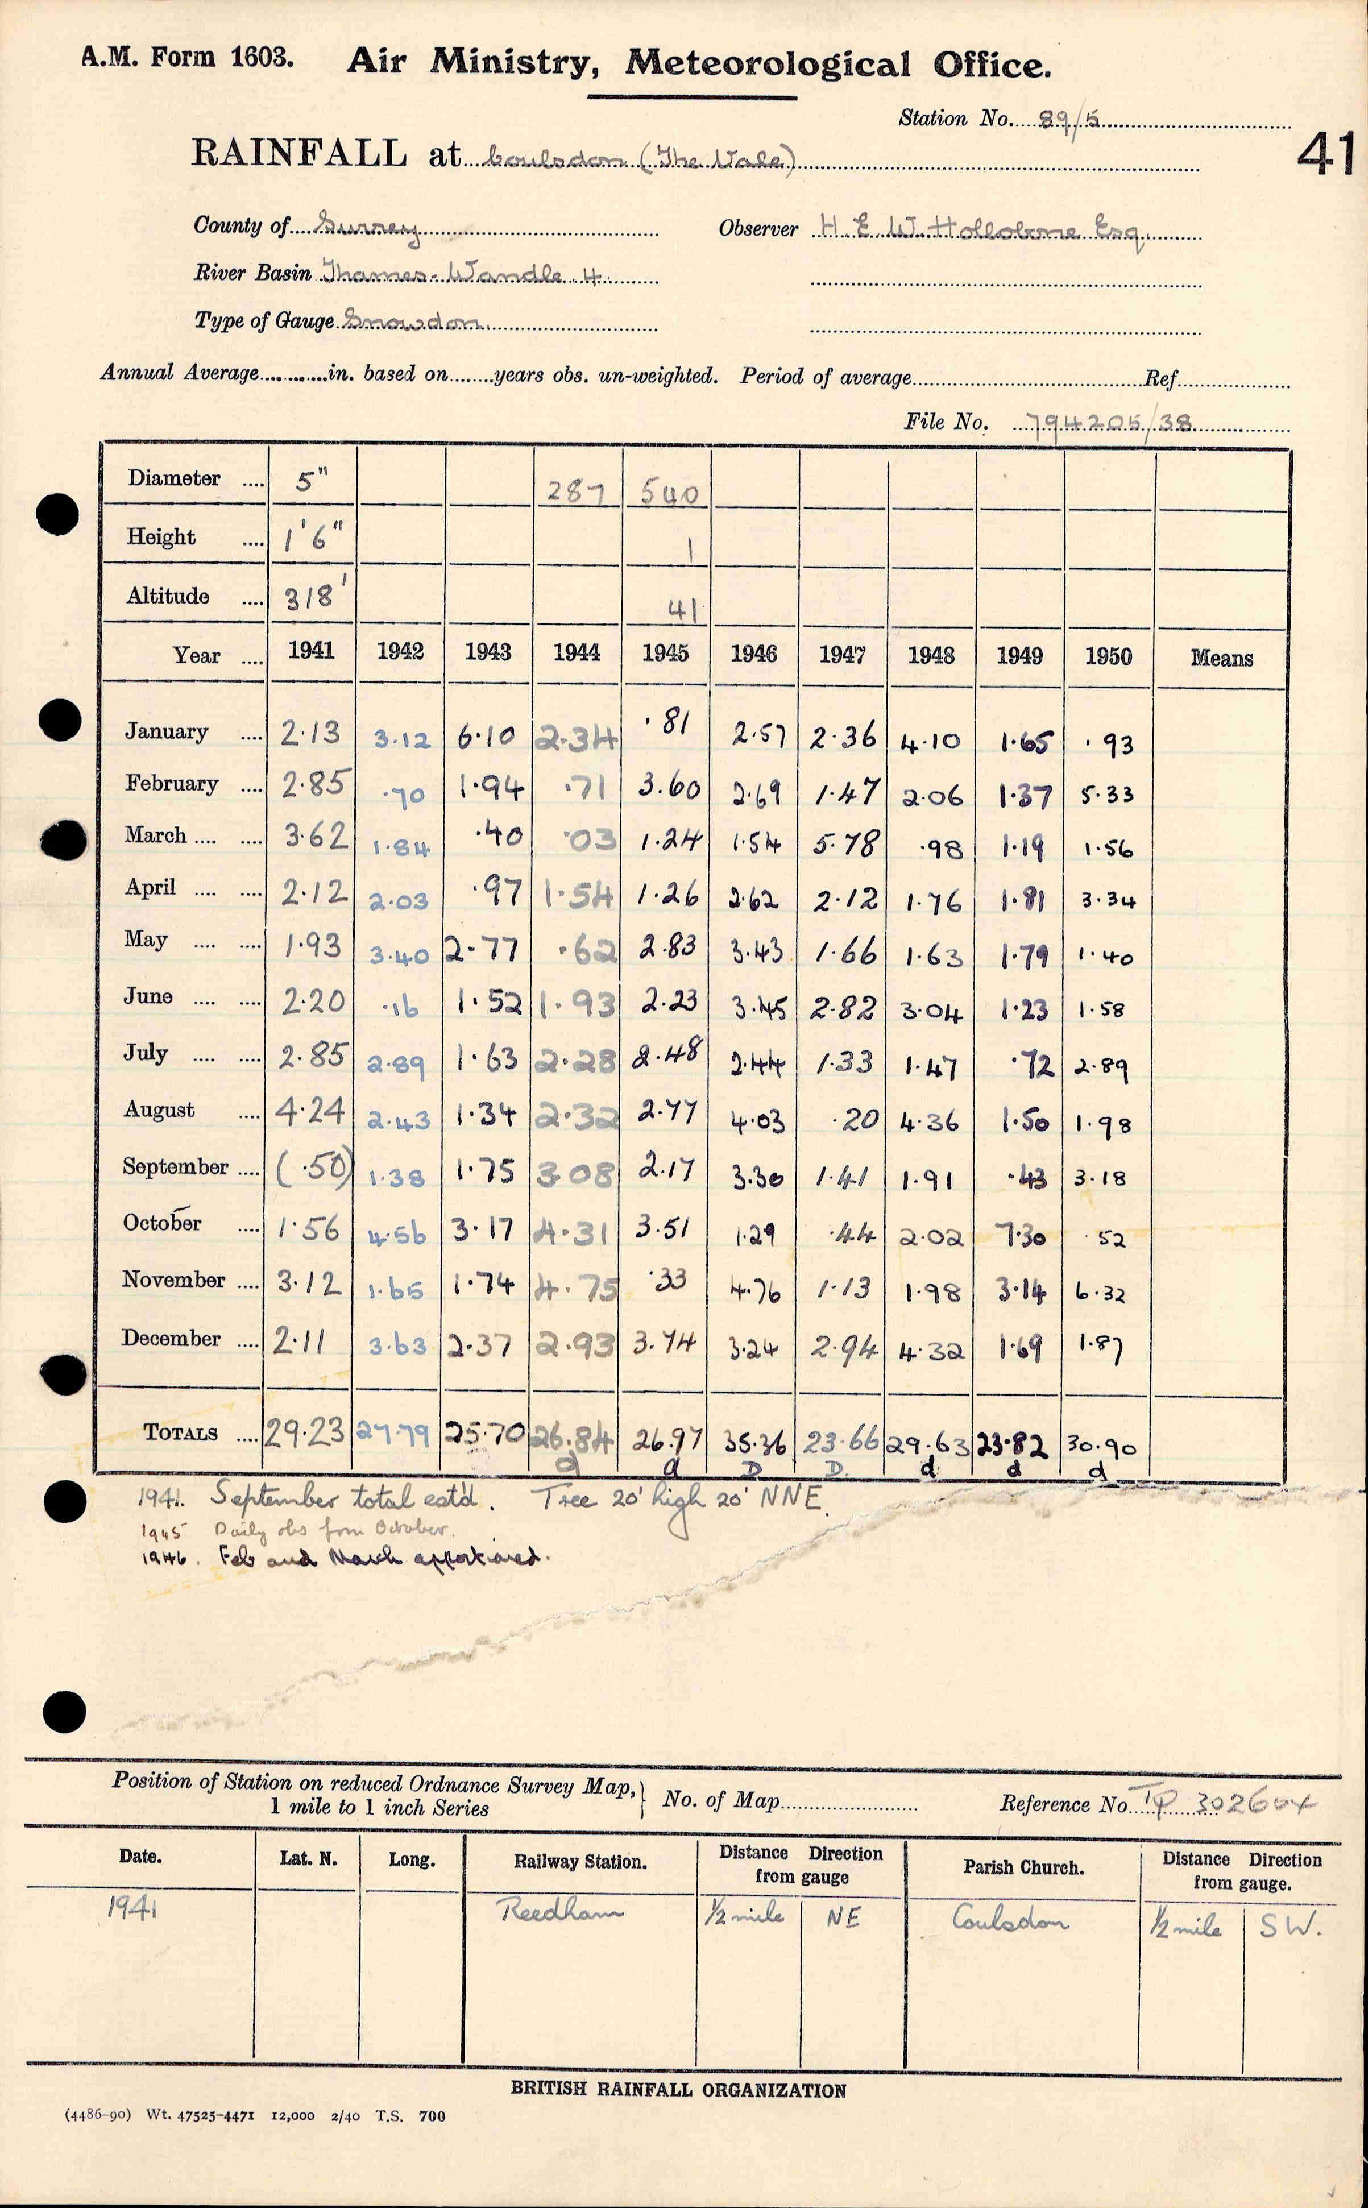 A.M. Form 1603. Air Ministry, Meteorological Office.
Station No. 89/5
RAINFALL at Coulsdon (The Vale) 41
County of Surrey Observer H. E. W. Hollobone Esq.
River Basin Thames-Wandle 4
Type of Gauge Snowdon
Annual Average............in. based on........years obs. un-weighted. Period of average Ref
File No. 794205/38
Diameter .... 5" 287 540
Height .... 1'6" 1
Altitude .... 318' 41
Year .... 1941 1942 1943 1944 1945 1946 1947 1948 1949 1950 Means
January .... 2.13 3.12 6.10 2.34 .81 2.57 2.36 4.10 1.65 .93
February .... 2.85 .70 1.94 .71 3.60 2.69 1.47 2.06 1.37 5.33
March .... .... 3.62 1.84 .40 .03 1.24 1.54 5.78 .98 1.19 1.56
April .... .... 2.12 2.03 .97 1.54 1.26 2.62 2.12 1.76 1.81 3.34
May .... .... 1.93 3.40 2.77 .62 2.83 3.43 1.66 1.63 1.79 1.40
June .... .... 2.20 .16 1.52 1.93 2.23 3.45 2.82 3.04 1.23 1.58
July .... .... 2.85 2.89 1.63 2.28 2.48 2.44 1.33 1.47 .72 2.89
August .... 4.24 2.43 1.34 2.32 2.77 4.03 .20 4.36 1.50 1.98
September .... (.50) 1.38 1.75 3.08 2.17 3.30 1.41 1.91 .43 3.18
October .... 1.56 4.56 3.17 4.31 3.51 1.29 .44 2.02 7.30 .52
November .... 3.12 1.65 1.74 4.75 .33 4.76 1.13 1.98 3.14 6.32
December .... 2.11 3.63 2.37 2.93 3.74 3.24 2.94 4.32 1.69 1.87
TOTALS .... 29.23 27.79 25.70 26.84 26.97 35.36 23.66 29.63 23.82 30.90
d d D D. d d d
1941. September total estd. Tree 20' high 20' NNE.
1945 Daily obs from October.
1946. Feb and March apportioned.
Position of Station on reduced Ordnance Survey Map, 1 mile to 1 inch Series } No. of Map Reference No. TQ 302604
Date. Lat. N. Long. Railway Station. Distance Direction from gauge Parish Church. Distance Direction from gauge.
1941 Reedham 1/2 mile NE Coulsdon 1/2 mile SW.
BRITISH RAINFALL ORGANIZATION
(4486-90) Wt. 47525-4471 12,000 2/40 T.S. 700